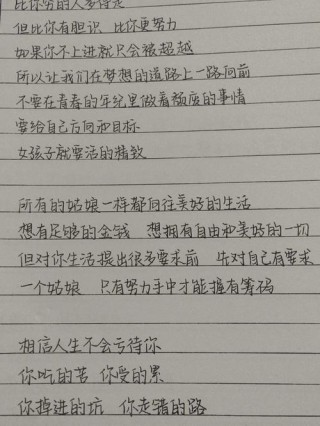 比你穷的人多得是
但比你有胆识 比你更努力
如果你不上进就只会被超越
所以让我们在梦想的道路上一路向前
不要在青春的年纪里做着颓废的事情
要给自己方向和目标
女孩子就要活的精致
所有的姑娘一样都向往美好的生活
想有足够的金钱 想拥有自由和美好的一切
但对你生活提出很多要求前 先对自己有要求
一个姑娘 只有努力手中才能握有筹码
相信人生不会亏待你
你吃的苦 你受的累
你掉进的坑 你走错的路